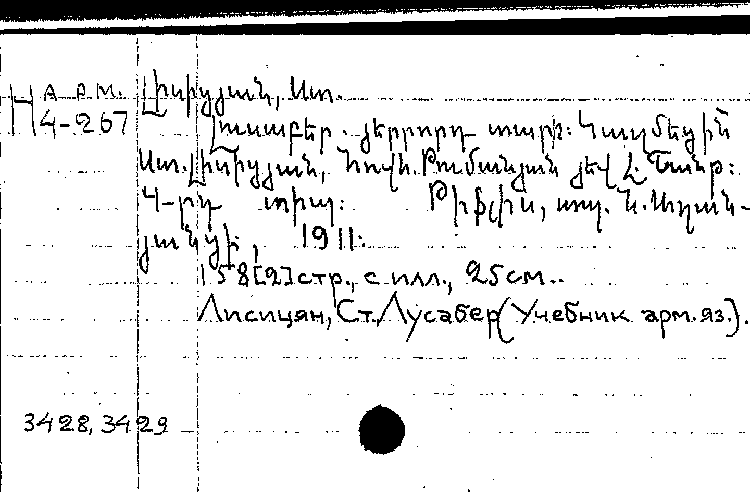 Н АРМ. Լիսիցյան, Ստ.
4-267
Լուսաբեր. յերրորդ տարի: Կազմեցին
Ստ. Լիսիցյան, Հովհ. Թումանյան յեվ Լ. Շանթ:
4-րդ տիպ: Թիֆլիս, տպ. Ն. Աղան-
յանցի, 1911:
158[2]стр., с илл., 25см..
Лисицян, Ст. Лусабер (Учебник арм. яз.).
3428, 3429